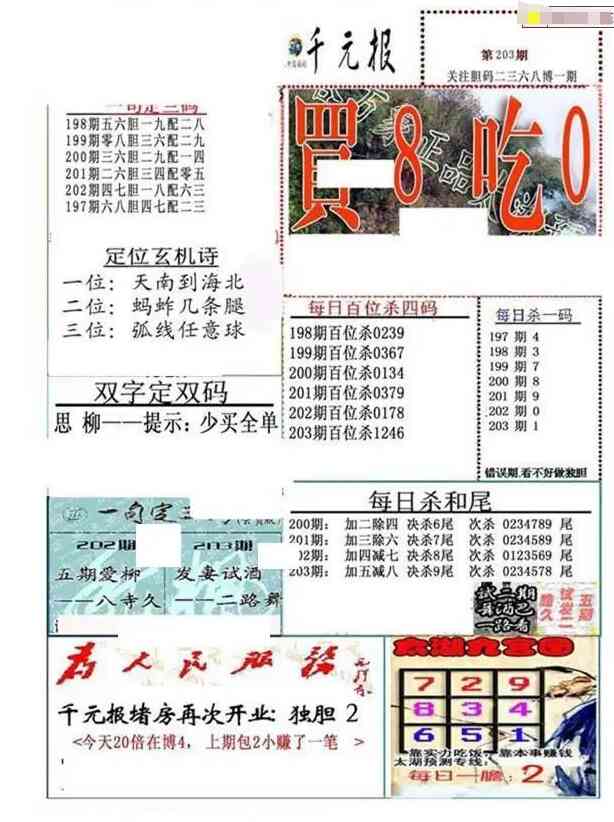 千元报
第203期
关注胆码二三六八博一期
一句定三码
198期五六胆一九配二八
199期零八胆三六配二九
200期三六胆二九配一四
201期二六胆三四配零五
202期四七胆一八配六三
197期六八胆四七配二三
買8吃0
定位玄机诗
一位：天南到海北
二位：蚂蚱几条腿
三位：弧线任意球
每日百位杀四码
198期百位杀0239
199期百位杀0367
200期百位杀0134
201期百位杀0379
202期百位杀0178
203期百位杀1246
每日杀一码
197 期 4
198 期 3
199 期 7
200 期 8
201 期 9
202 期 0
203 期 1
错误期.看不好做独胆
双字定双码
思 柳——提示：少买全单
每日杀和尾
200期： 加二除四 决杀6尾 次杀 0234789 尾
201期： 加三除六 决杀7尾 次杀 0234589 尾
02期： 加四减七 决杀8尾 次杀 0123569 尾
203期： 加五减八 决杀9尾 次杀 0234578 尾
一句定三
202期 203期
五期爱柳 发妻试酒
——八寺久 ——二路舞
为人民服务
千元报堵房再次开业：独胆 2
<今天20倍在博4，上期包2小赚了一笔 >
太湖九宫图
7 2 9
8 3 4
6 5 1
靠实力吃饭，靠本事赚钱
太湖预测专线：
每日一胆：2